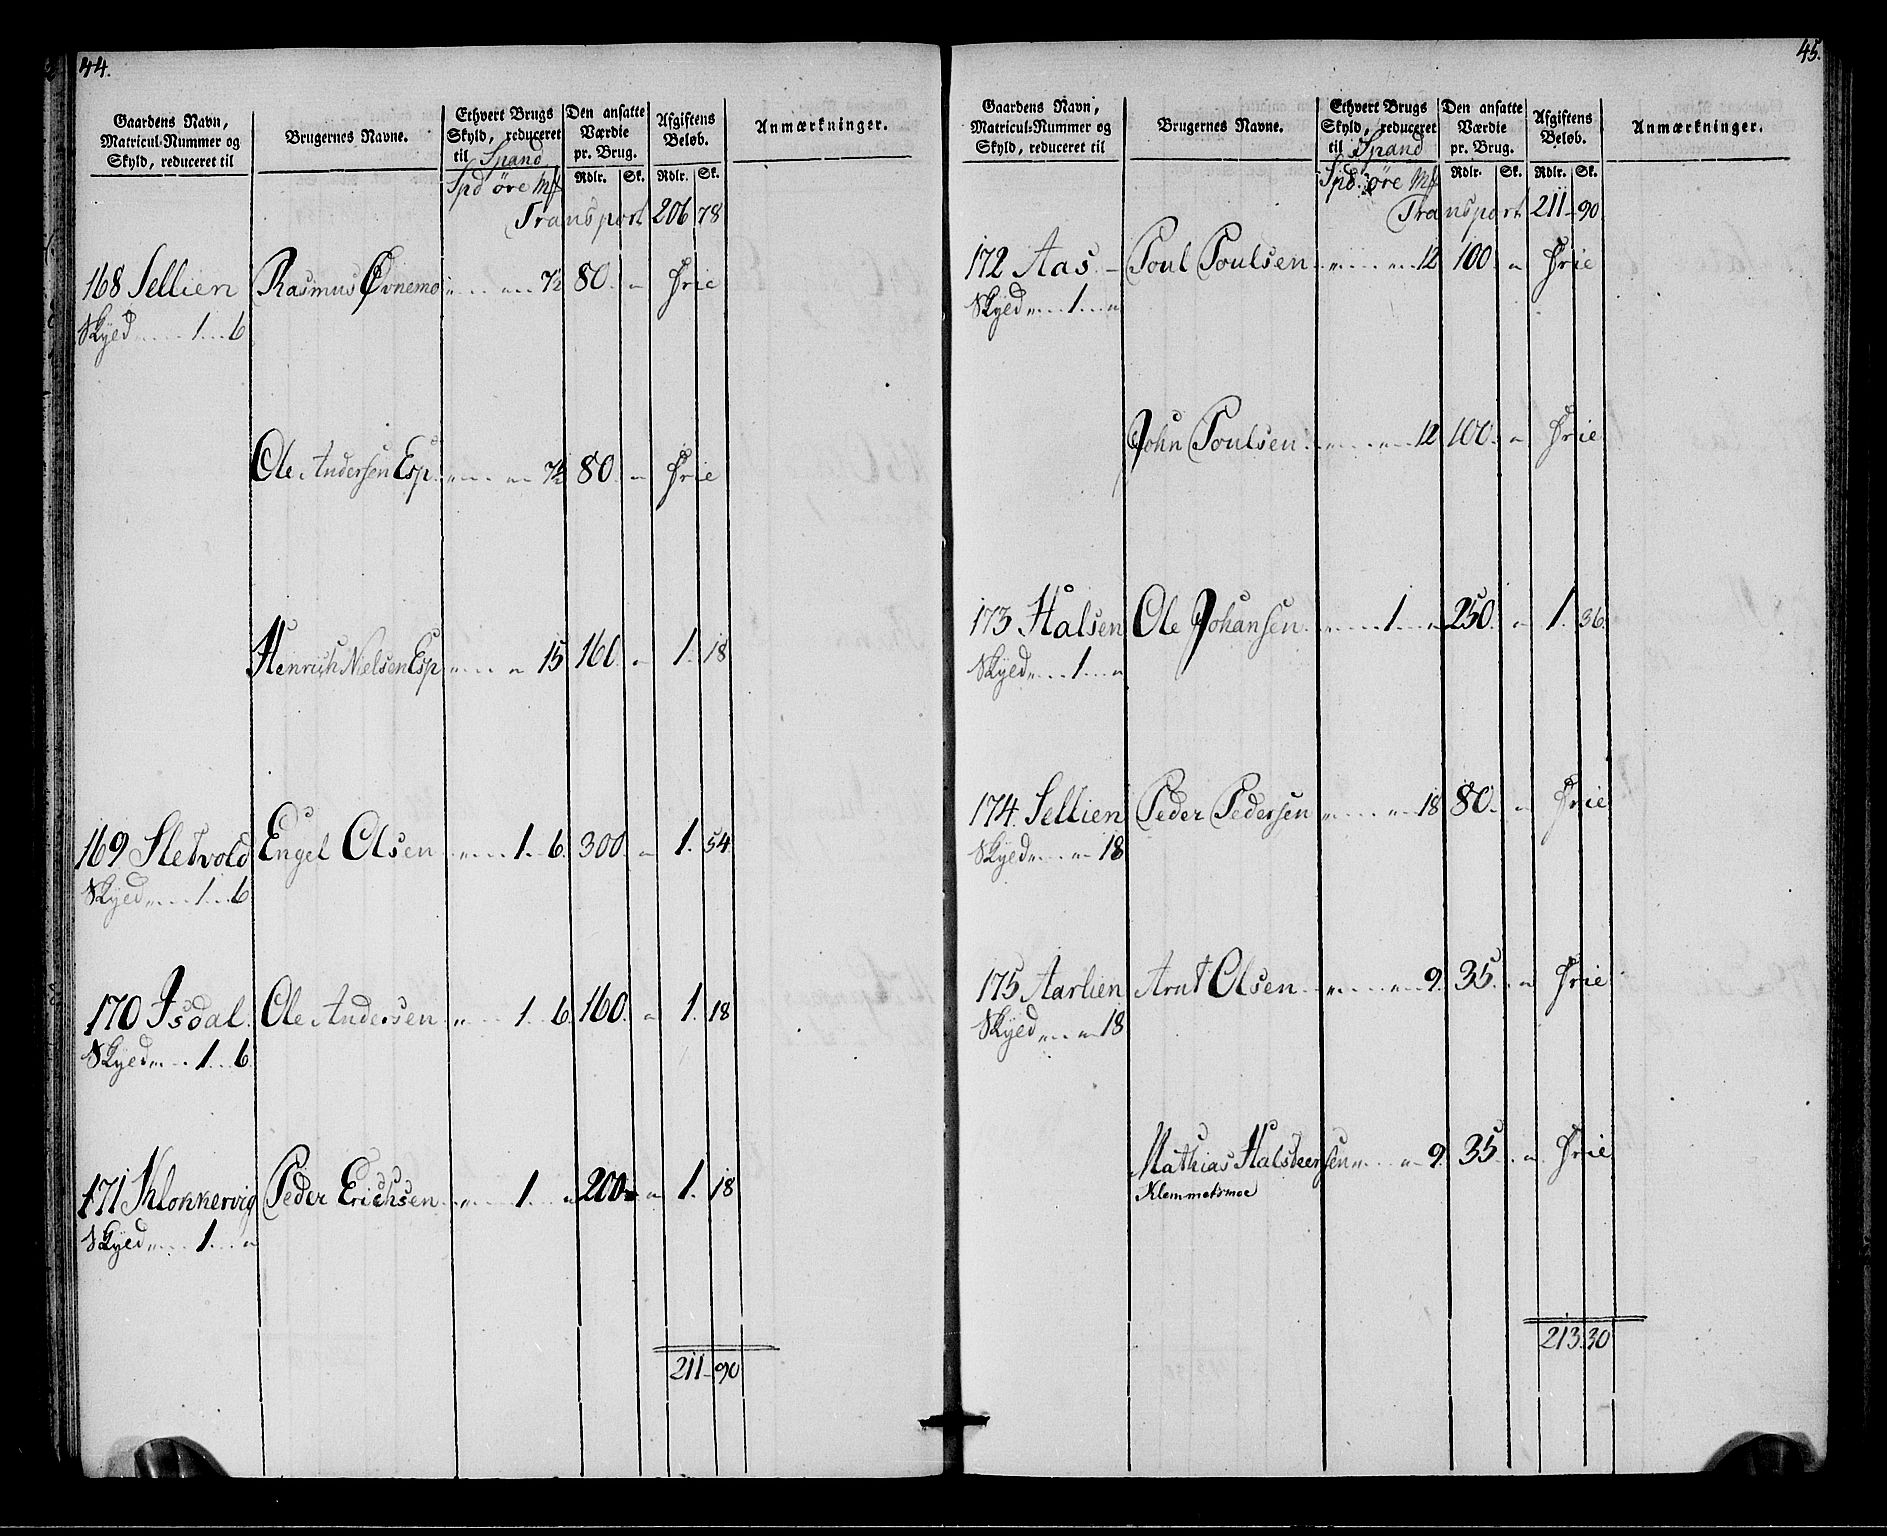 44.
Gaardens Navn, Matricul-Nummer og Skyld, reduceret til
Brugernes Navne.
Ethvert Brugs Skyld, reduceret til Spand
Den ansatte Værdie pr. Brug.
Afgiftens Beløb.
Anmærkninger.
Spd øre Mk Rdlr. Sk. Rdlr. Sk.
Transport 206 78
168 Sellien Rasmus Øvnemo " " 7½ 80. " Frie
Skyed " 1 6
Ole Andersen Esp. " " 7½ 80. " Frie
Henrich Nielsen Esp " " 15 160. " 1. 18
169 Sletvold Engel Olsen " 1. 6. 300. " 1. 54.
Skyed " 1 6
170 Isdal. Ole Andersen " 1. 6. 160. " 1. 18
Skyed " 1 6.
171 Klokkervig Peder Erichsen " 1. " 200 " 1. 18
Skyed " 1. "
211 - 90
45.
Gaardens Navn, Matricul-Nummer og Skyld, reduceret til
Brugernes Navne.
Ethvert Brugs Skyld, reduceret til Spand
Den ansatte Værdie pr. Brug.
Afgiftens Beløb.
Anmærkninger.
Spd. øre Mk Rdlr. Sk. Rdlr. Sk.
Transport 211 - 90
172 Aas - Poul Poulsen " " 12 100. " Frie
Skyed " 1 "
John Poulsen " " 12 100. " Frie
173 Halsen Ole Johansen " 1 " 250. " 1. 36.
Skyed " 1 "
174. Sellien Peder Pedersen " " 18 80. " Frie
Skyed " " 18
175 Aarlien Arnt Olsen " " 9. 35. " Frie
Skyed " " 18
Mathias Halsteensen " " 9. 35. " Frie
Klemmetsmoe
213. 30